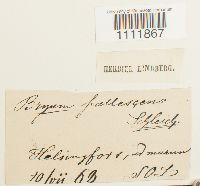 1111867
HERBIER LINDBERG.
Bryum pallescens
Schleich.
Helsingfors,
10/vii 63 SOL